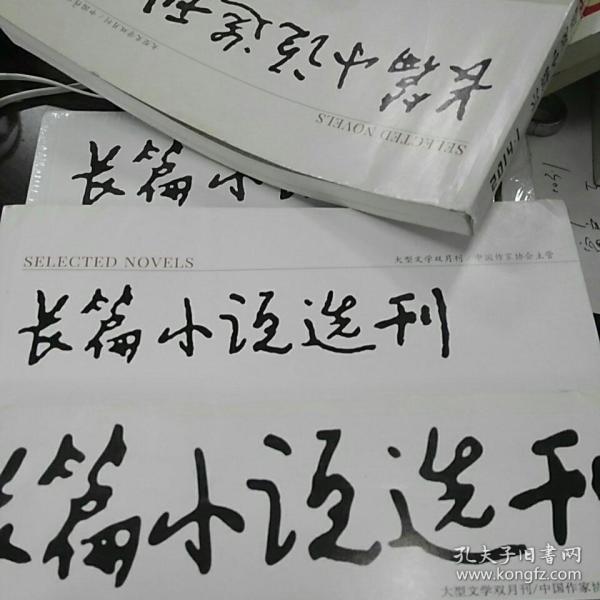 大型文学双月刊/中国作
长篇小说选刊
SELECTED NOVELS
长篇小说
SELECTED NOVELS
大型文学双月刊/中国作家协会主管
长篇小说选刊
长篇小说选刊
大型文学双月刊/中国作家协
孔夫子旧书网
www.kongfz.com